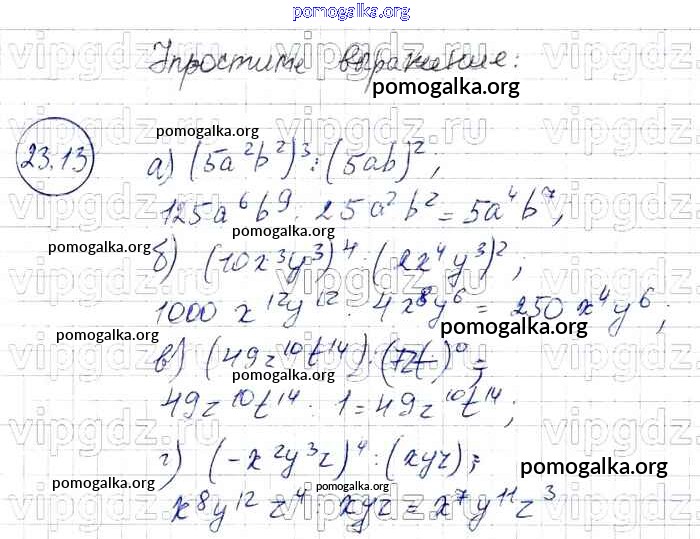 pomogalka.org
Упростите выражение:
pomogalka.org
23.13
pomogalka.org
а) (5a²b²)³ : (5ab)²;
125a⁶b⁹ : 25a²b² = 5a⁴b⁷;
pomogalka.org
pomogalka.org
б) (10x³y³)⁴ : (2x⁴y³)²;
1000 x¹²y¹² : 4x⁸y⁶ = 250 x⁴y⁶;
pomogalka.org
pomogalka.org
в) (49z¹⁰t¹⁴) : (7zt)⁰;
pomogalka.org
49z¹⁰t¹⁴ : 1 = 49z¹⁰t¹⁴;
г) (-x²y³z)⁴ : (xyz);
pomogalka.org
x⁸y¹²z⁴ : xyz = x⁷y¹¹z³
vipgdz.ru vipgdz.ru vipgdz